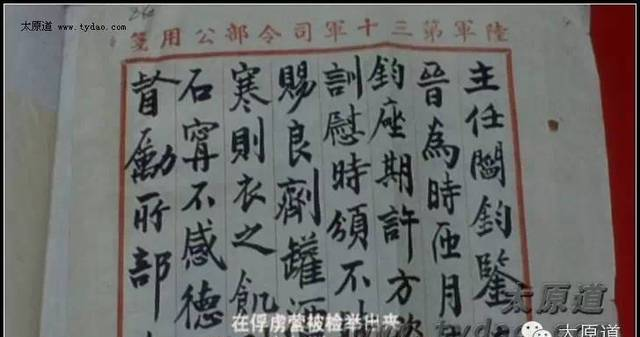 太原道 www.tydao.com
陸軍第三十軍司令部公用箋
主任閻鈞鑒
晉為時匝月
鈞座期許方
訓慰時頒不
賜良劑罐
寒則衣之飢
石寧不感德
督勵所部
在俘虏营被检举出来
太原道
www.tydao.com
太原道